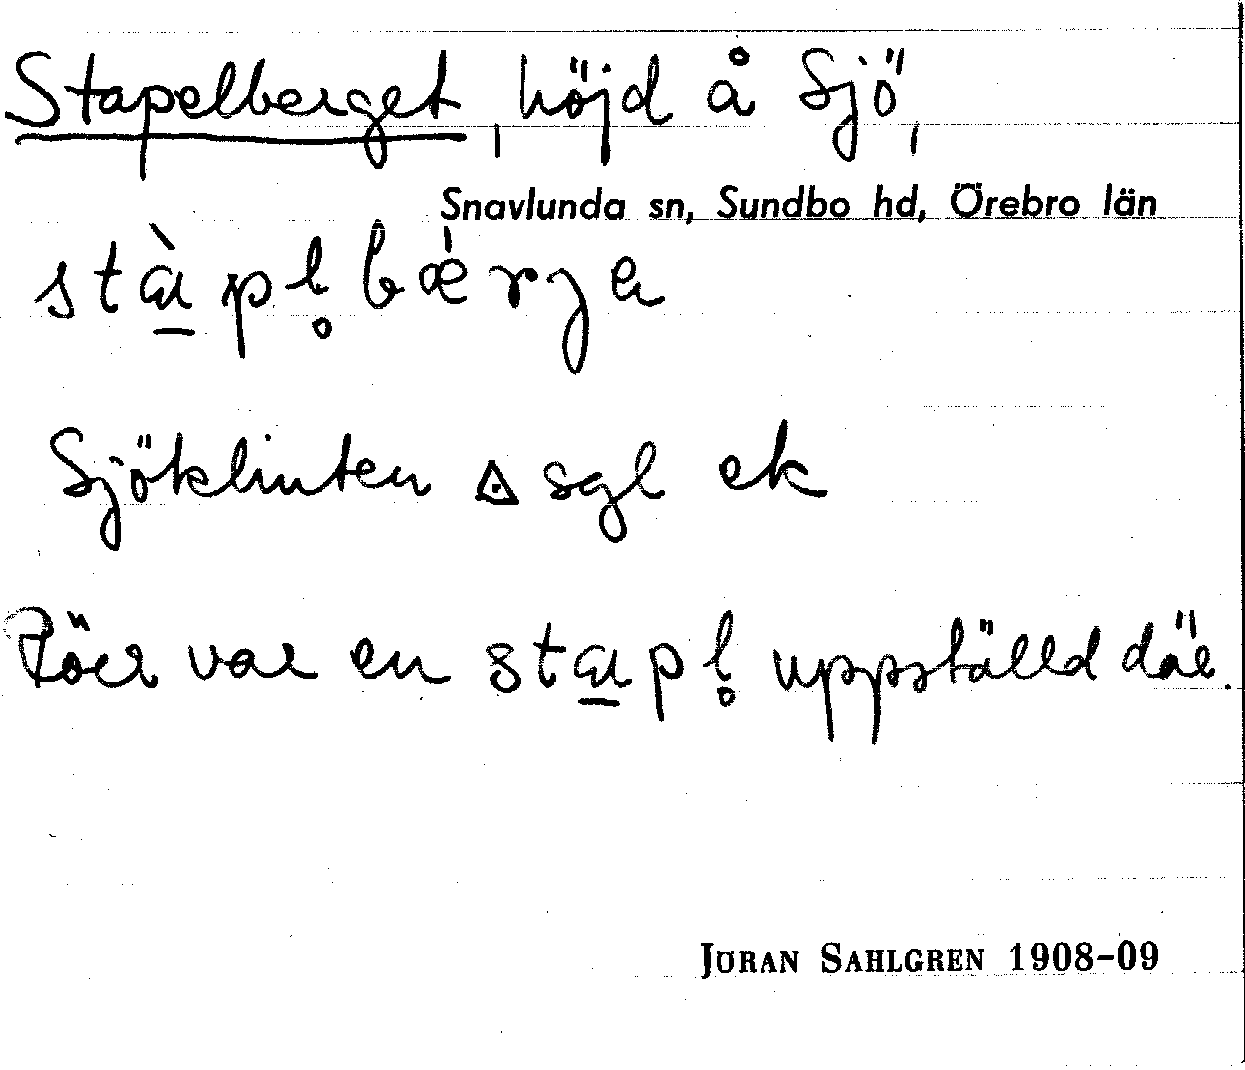 Stapelberget, höjd å Sjö,
Snavlunda sn, Sundbo hd, Örebro län
stàpl̥bæ̀rjɘ
Sjöklinten sgl ek
Förr var en stapl̥ uppställd där.
JÖRAN SAHLGREN 1908–09